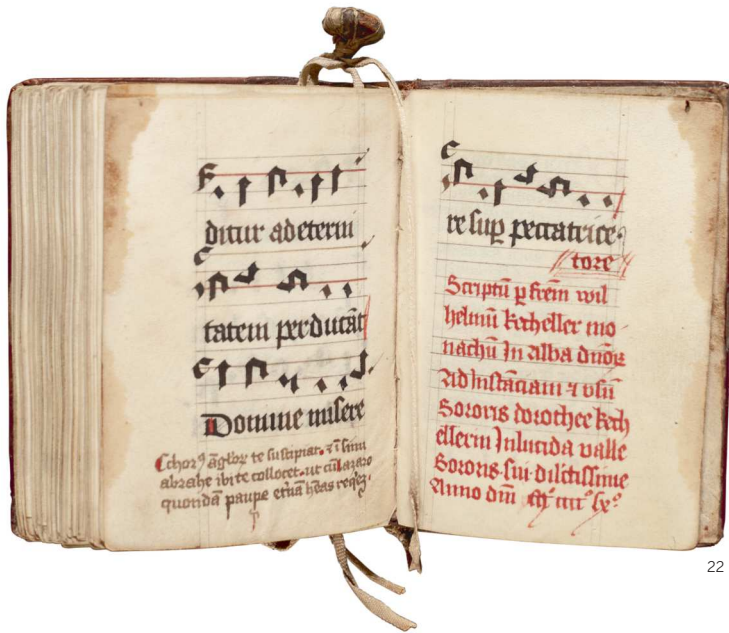 ditur ad eterni
tatem perducãt
Domine misere
Chorꝰ ãgloꝝ te suscipiat. ⁊ ĩ sinu
abrahe ibi te collocet. ut cũ lazaro
quõdã paupe etnã hẽas reqẽ.
re sup peccatrice
tore
Scriptũ ꝑ frẽm wil
helmũ kecheller mo
nachũ In alba dnõꝝ
Ad Instãciam ⁊ vsũ
Sororis dorothee kech
ellerin In lucida valle
Sororis sui dilctissime
Anno dm̃ cccꝰ lxꝰ
22